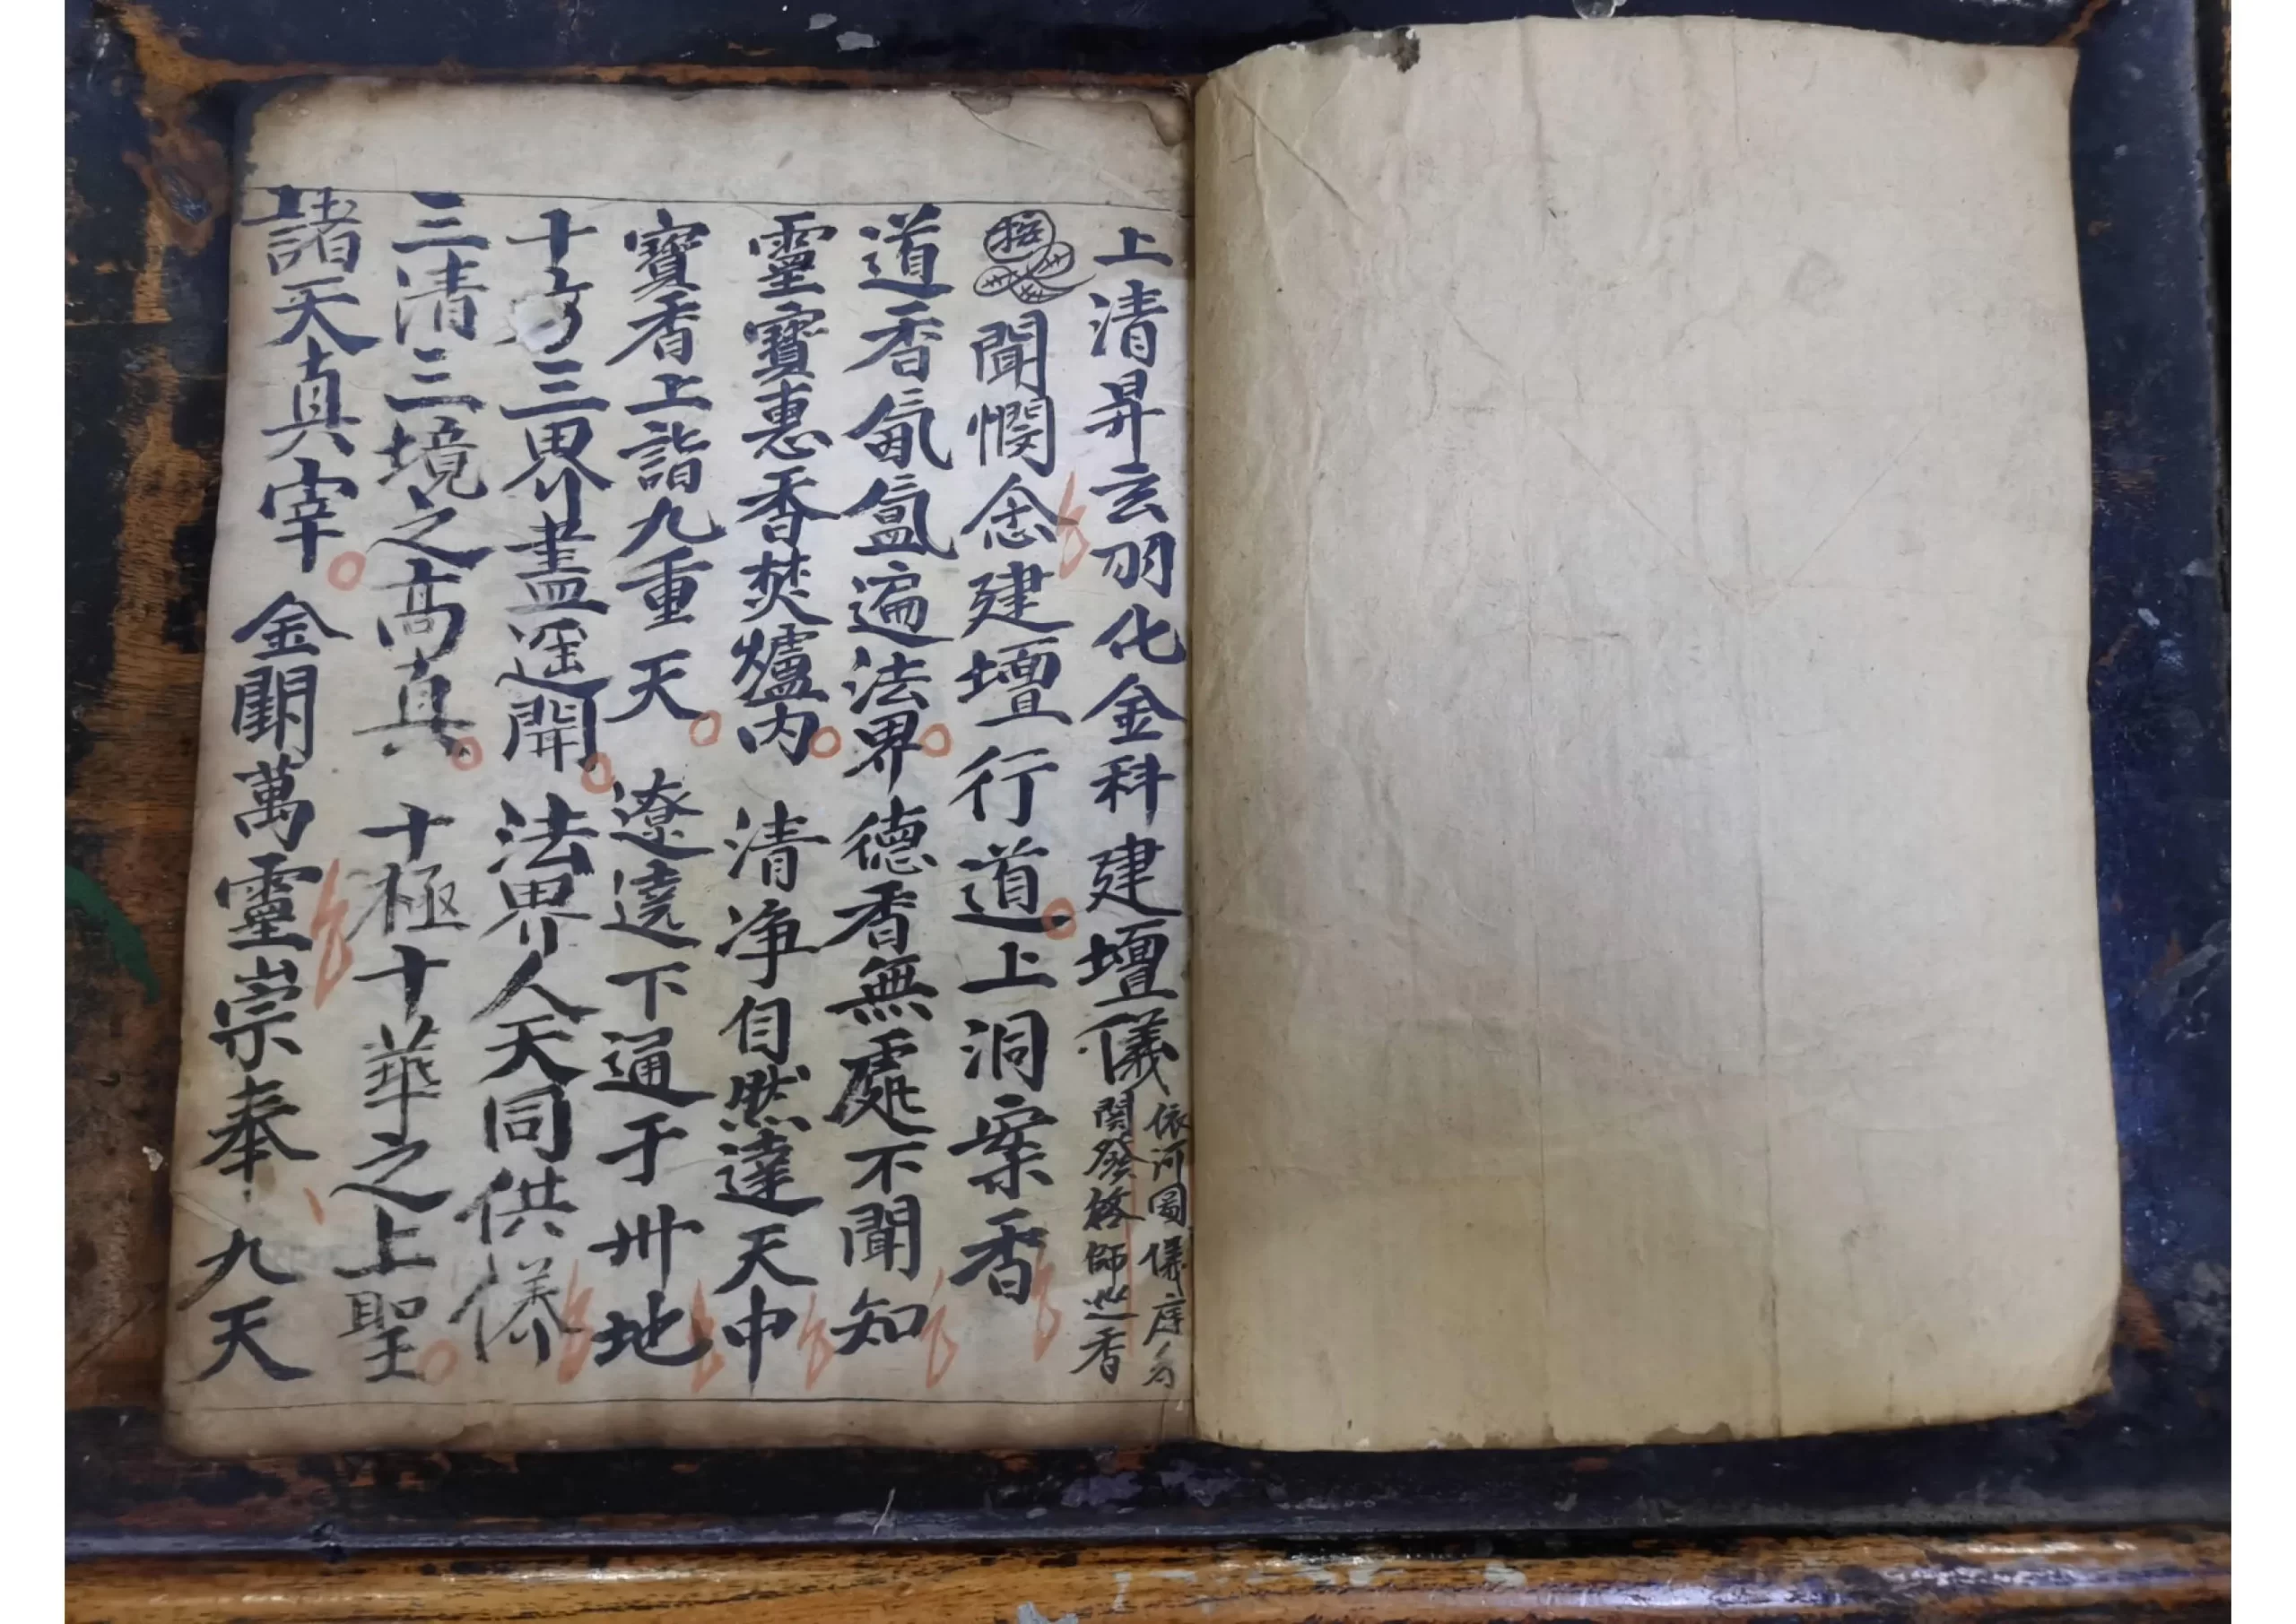 上清昇玄羽化金科建壇儀
依河圖儀序名
開發啓師巡香
聞憫念建壇行道上洞案香
道香氤氳遍法界德香無處不聞知
靈寶惠香焚爐内清净自然達天中
寶香上詣九重天遼遶下通于卅地
十方三界盡遥開法界人天同供养
三清三境之高真十極十華之上聖
諸天真宰金闕萬靈崇奉九天